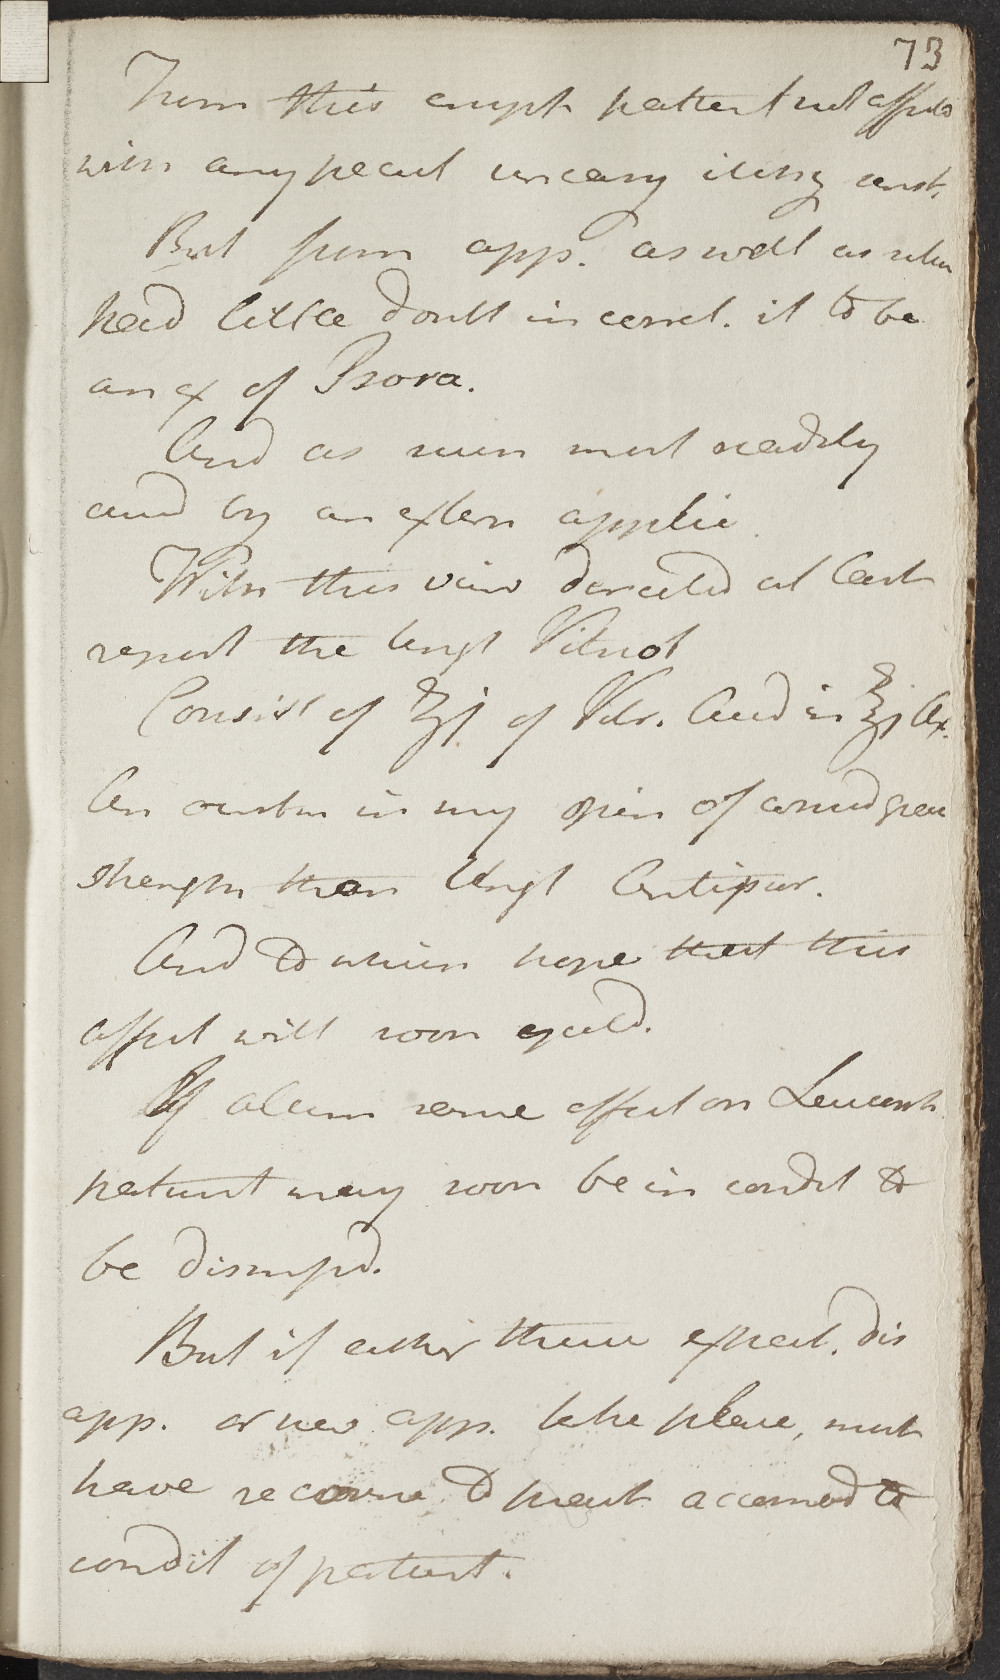 73
From this erupt patient not affected
with any pecul uneasy itching sens.
But from app. as well as
had little doubt in consid. it to be
an ex of Psora.
And as such most readily
cured by an extern applic.
With this view directed at last
report the Ungt Vitriol
Consist of ʒj of Vitr. Acid in ℥j Ax.
An ointm in my opin of consid great
strength than Ungt Antipsor.
And to which hope that this
affect will soon yield.
If alum same effect on Leucorrh
patient may soon be in condit to
be dismissd.
But if either these expect. dis
app. or new app. take place, must
have recourse to pract accomod to
condit of patient.